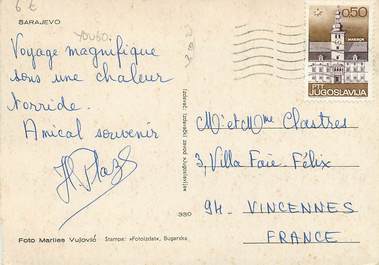 6 €
SARAJEVO
YOUGO.
Voyage magnifique
sous une chaleur
torride.
Amical souvenir
0,50
MARIBOR
PTT
JUGOSLAVIJA
Izdavač: Izdavački zavod «Jugoslavija»
Mr et Mme Chastres
3, Villa Faie-Félix
94- VINCENNES
FRANCE
330
Foto Marlies Vujović Stampa: «Fotoizdat», Bugarska